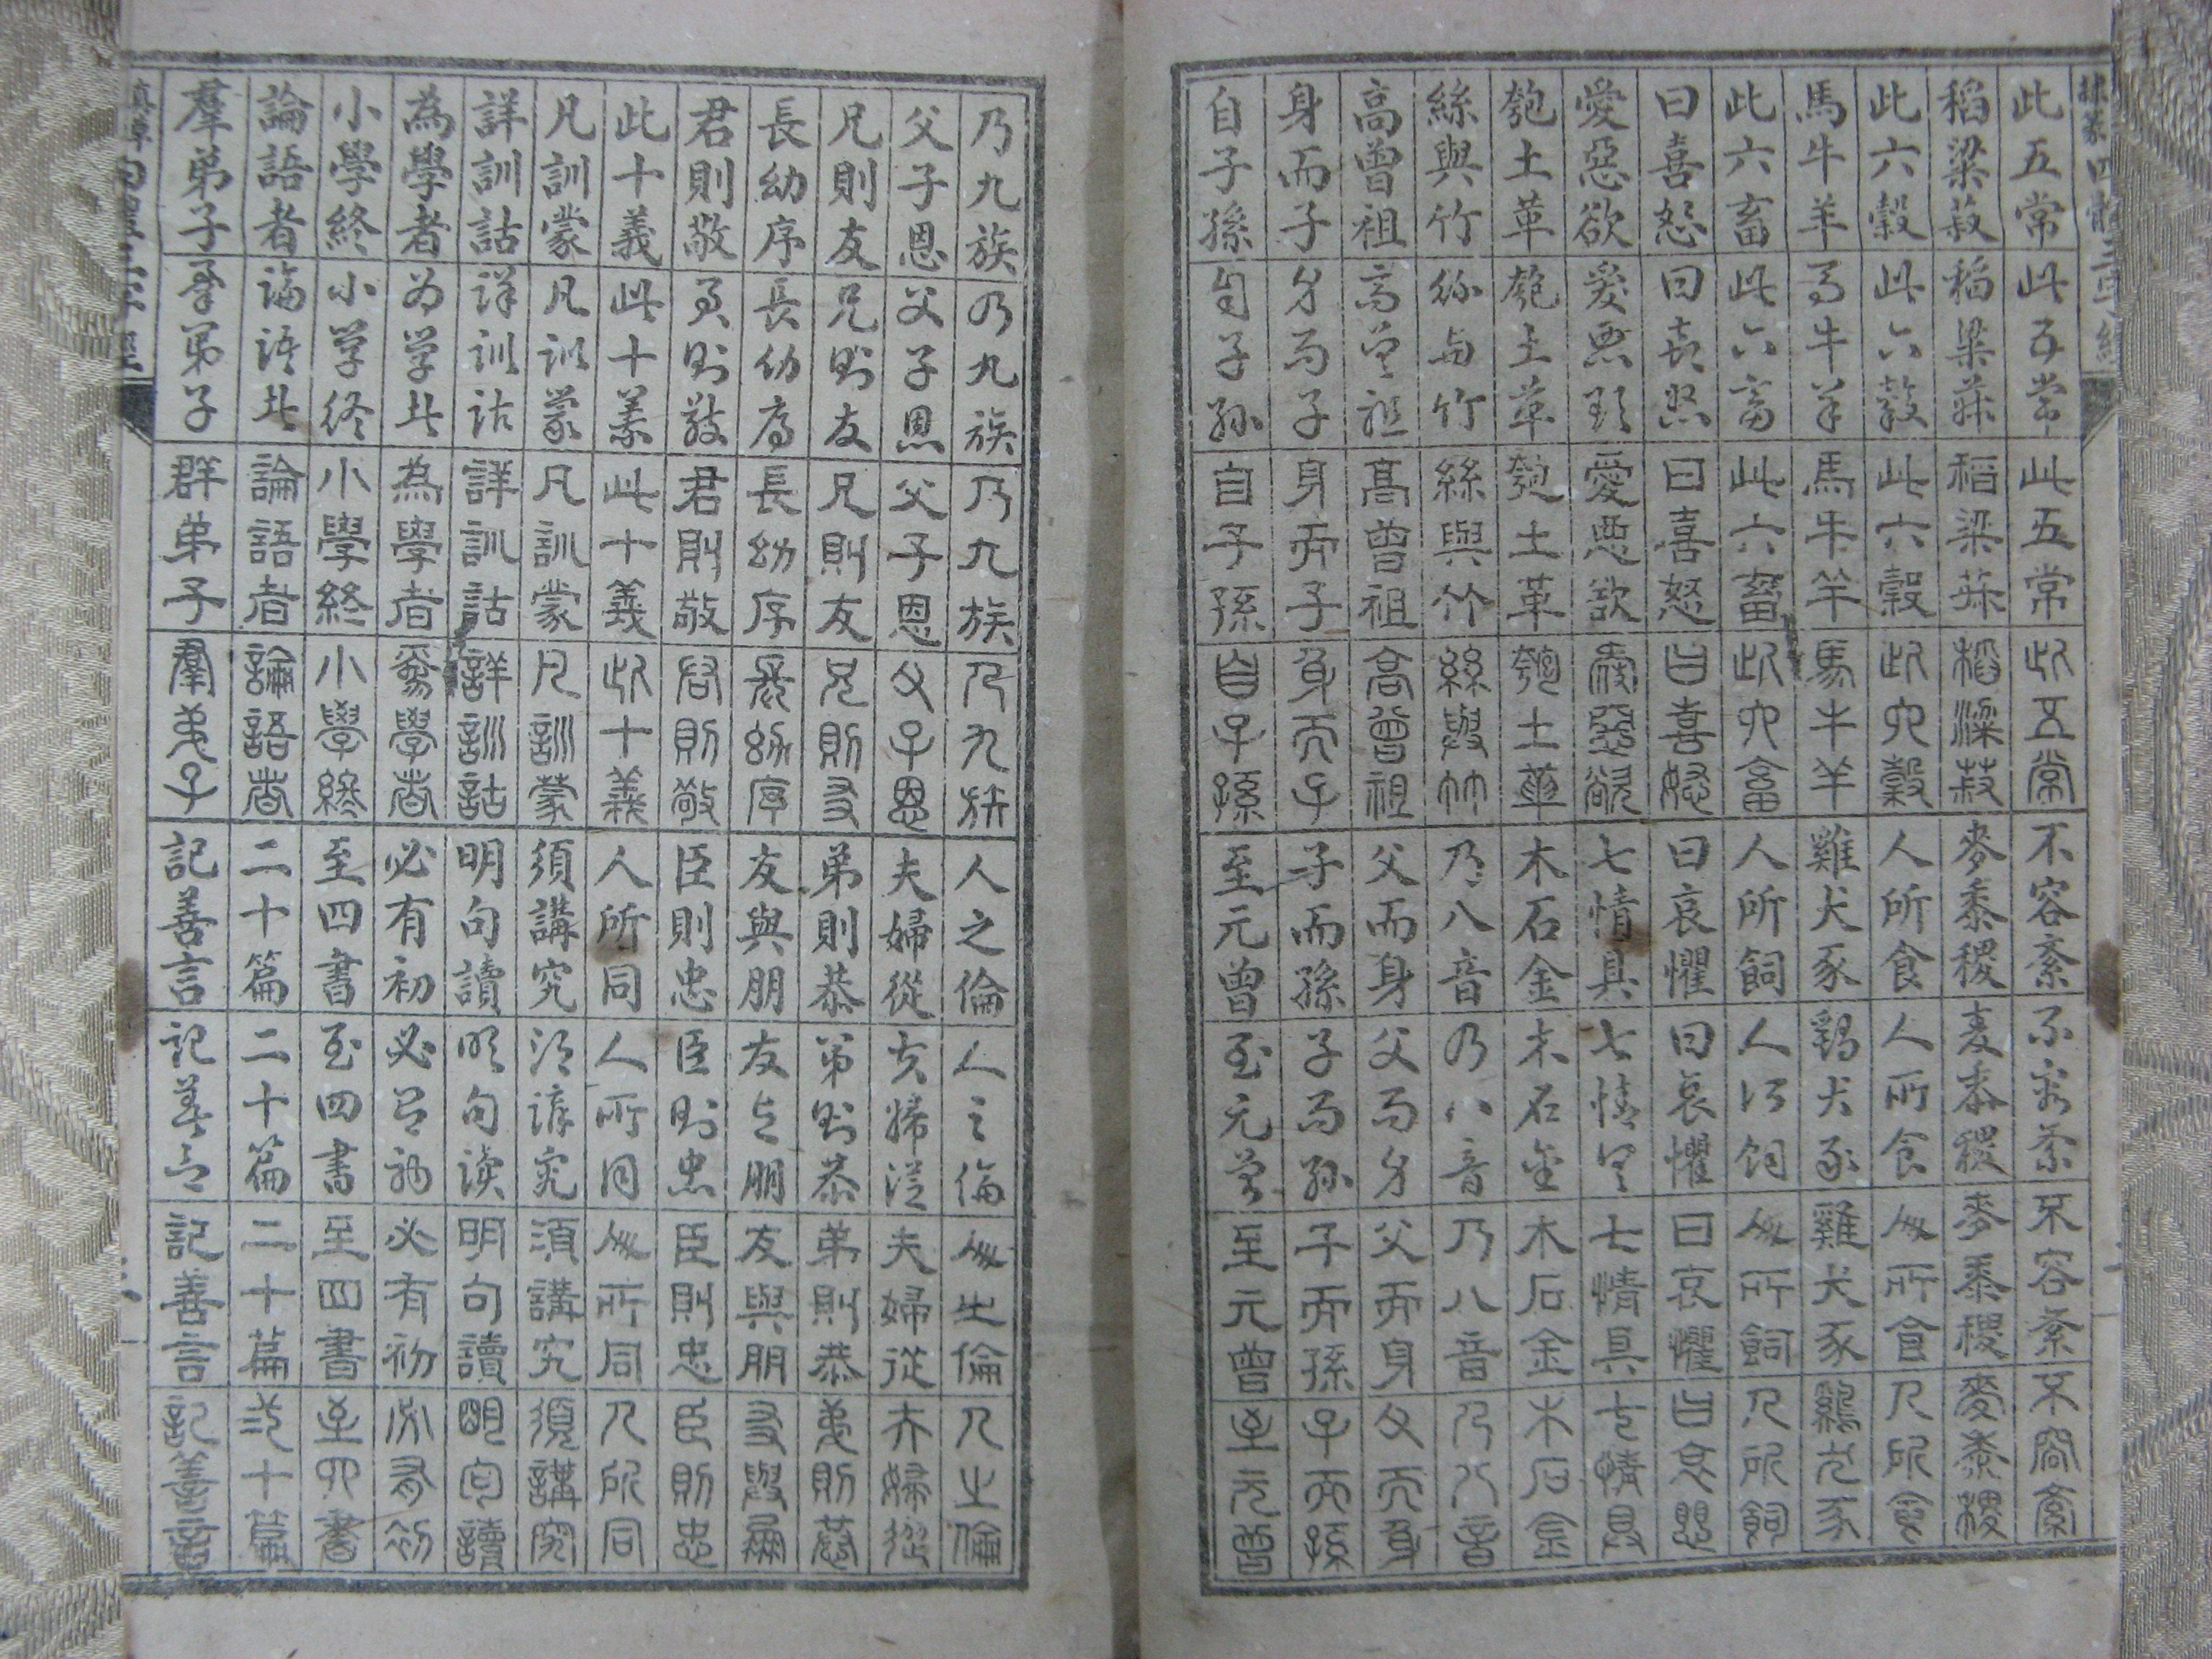 四體三字經
此五常此五常此五常此五常不容紊不容紊不容紊不容紊
稻粱菽稻粱菽稻粱菽稻粱菽麥黍稷麥黍稷麥黍稷麥黍稷
此六穀此六穀此六穀此六穀人所食人所食人所食人所食
馬牛羊馬牛羊馬牛羊馬牛羊雞犬豕鷄犬豕雞犬豕鷄犬豕
此六畜此六畜此六畜此六畜人所飼人所飼人所飼人所飼
曰喜怒曰喜怒曰喜怒曰喜怒曰哀懼曰哀懼曰哀懼曰哀懼
愛惡欲愛惡欲愛惡欲愛惡欲七情具七情具七情具七情具
匏土革匏土革匏土革匏土革木石金木石金木石金木石金
絲與竹絲與竹絲與竹絲與竹乃八音乃八音乃八音乃八音
高曾祖高曾祖高曾祖高曾祖父而身父而身父而身父而身
身而子身而子身而子身而子子而孫子而孫子而孫子而孫
自子孫自子孫自子孫自子孫至元曾至元曾至元曾至元曾
乃九族乃九族乃九族乃九族人之倫人之倫人之倫人之倫
父子恩父子恩父子恩父子恩夫婦從夫婦從夫婦從夫婦從
兄則友兄則友兄則友兄則友弟則恭弟則恭弟則恭弟則恭
長幼序長幼序長幼序長幼序友與朋友與朋友與朋友與朋
君則敬君則敬君則敬君則敬臣則忠臣則忠臣則忠臣則忠
此十義此十義此十義此十義人所同人所同人所同人所同
凡訓蒙凡訓蒙凡訓蒙凡訓蒙須講究須講究須講究須講究
詳訓詁詳訓詁詳訓詁詳訓詁明句讀明句讀明句讀明句讀
為學者為學者為學者為學者必有初必有初必有初必有初
小學終小學終小學終小學終至四書至四書至四書至四書
論語者論語者論語者論語者二十篇二十篇二十篇二十篇
羣弟子羣弟子群弟子羣弟子記善言記善言記善言記善言